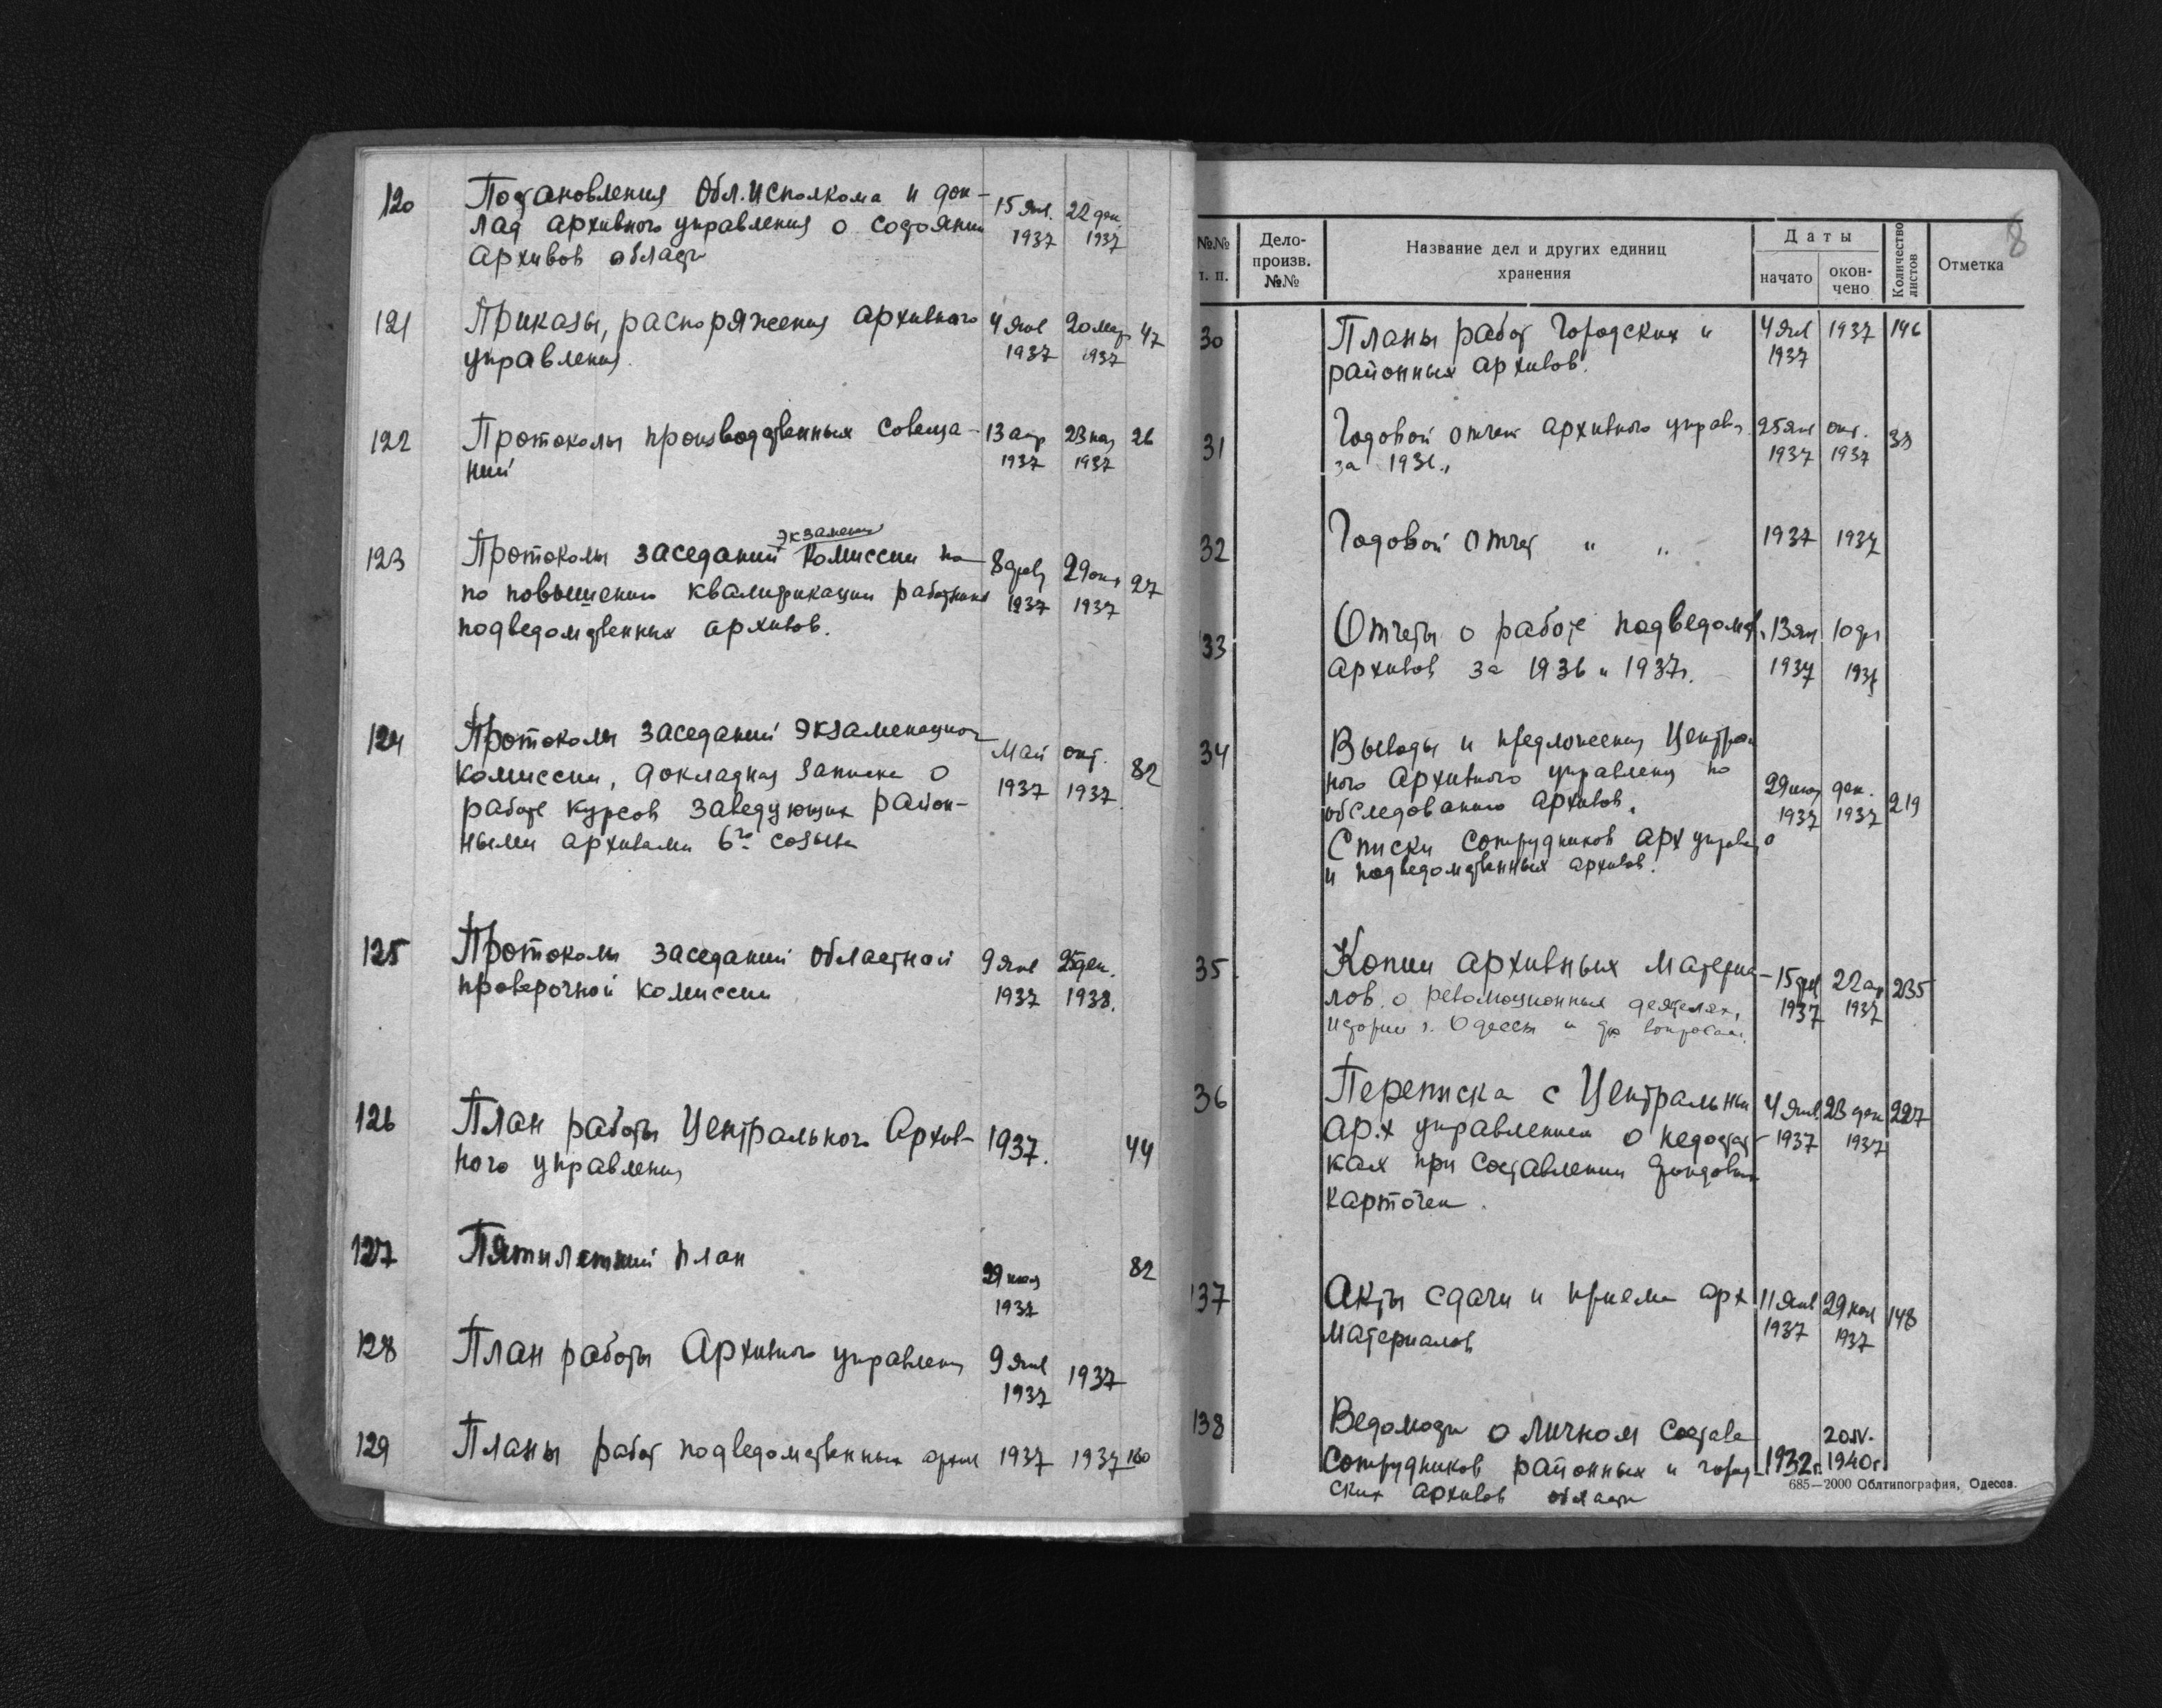 120 Постановления Обл.исполкома и док- 15 янв. 22 дек.
лад архивного управления о состоянии 1937 1937
архивов области
121 Приказы, распоряжения архивного 4 янв 20 мар 47
управления. 1937 1937
122 Протоколы производственных совеща- 13 апр 23 1937 26
ний 1937
экзамен
123 Протоколы заседаний комиссии по 8 фев 29 окт 27
по повышению квалификации работников 1937 1937
подведомственных архивов.
124 Протоколы заседаний экзаменацион Май окт. 82
комиссии, докладная записка о 1937 1937.
работе курсов заведующих район-
ными архивами 6го созыва
125 Протоколы заседаний областной 9 янв 25 дек.
проверочной комиссии 1937 1938.
126 План работы Центрального Архив- 1937. 44
ного управления
127 Пятилетний план 82
1937
128 План работы Архивного управления 9 янв 1937
1937
129 Планы работ подведомственных архив 1937 1937 160
8
№№ п. п. Дело- произв. №№ Название дел и других единиц хранения Даты начато окон- чено Количество листов Отметка
30 Планы работ Городских и 4 янв 1937 146
районных архивов. 1937
31 Годовой отчет архивного управл. 25 янв окт. 38
за 1937 1937
32 Годовой отчет " " 1937 1937
33 Отчеты о работе подведомств. 13 янв 10
архивов за 1936 и 1937г. 1937 1937
34 Выводы и предложения Централь
ного Архивного управления по 29 дек. 219
обследованию архивов. 1937 1937
Списки сотрудников арх управл
и подведомственных архивов.
35. Копии архивных материа- 15 фев 22 ап 235
лов о революционных деятелях, 1937 1937
истории г. Одессы и др вопросам.
36 Переписка с Центральным 4 янв. 23 дек 227
арх управлением о недостат- 1937 1937
ках при составлении фондовых
карточек.
137 Акты сдачи и приема арх 11 янв 29 ноя 148
материалов 1937 1937
138 Ведомости о личном составе 20 IV.
сотрудников районных и город- 1932г. 1940г.
ских архивов области
685—2000 Облтипография, Одесса.